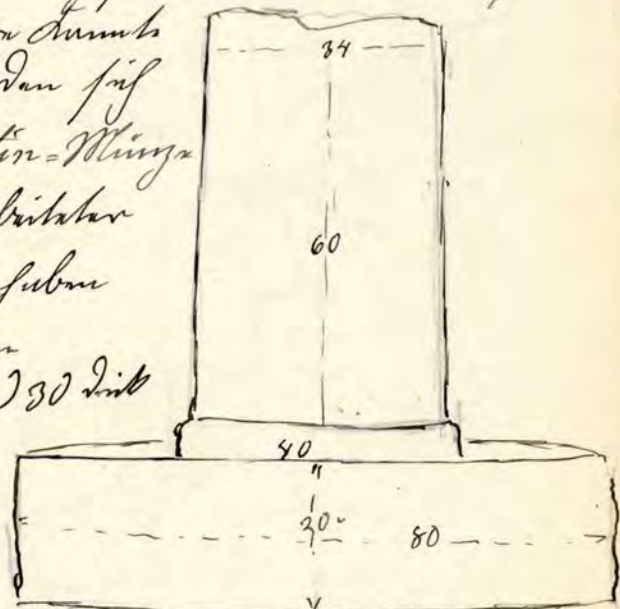 konnte
den sich
in=Münze
beiteter
haben
30 dick
34
60
40
20
80